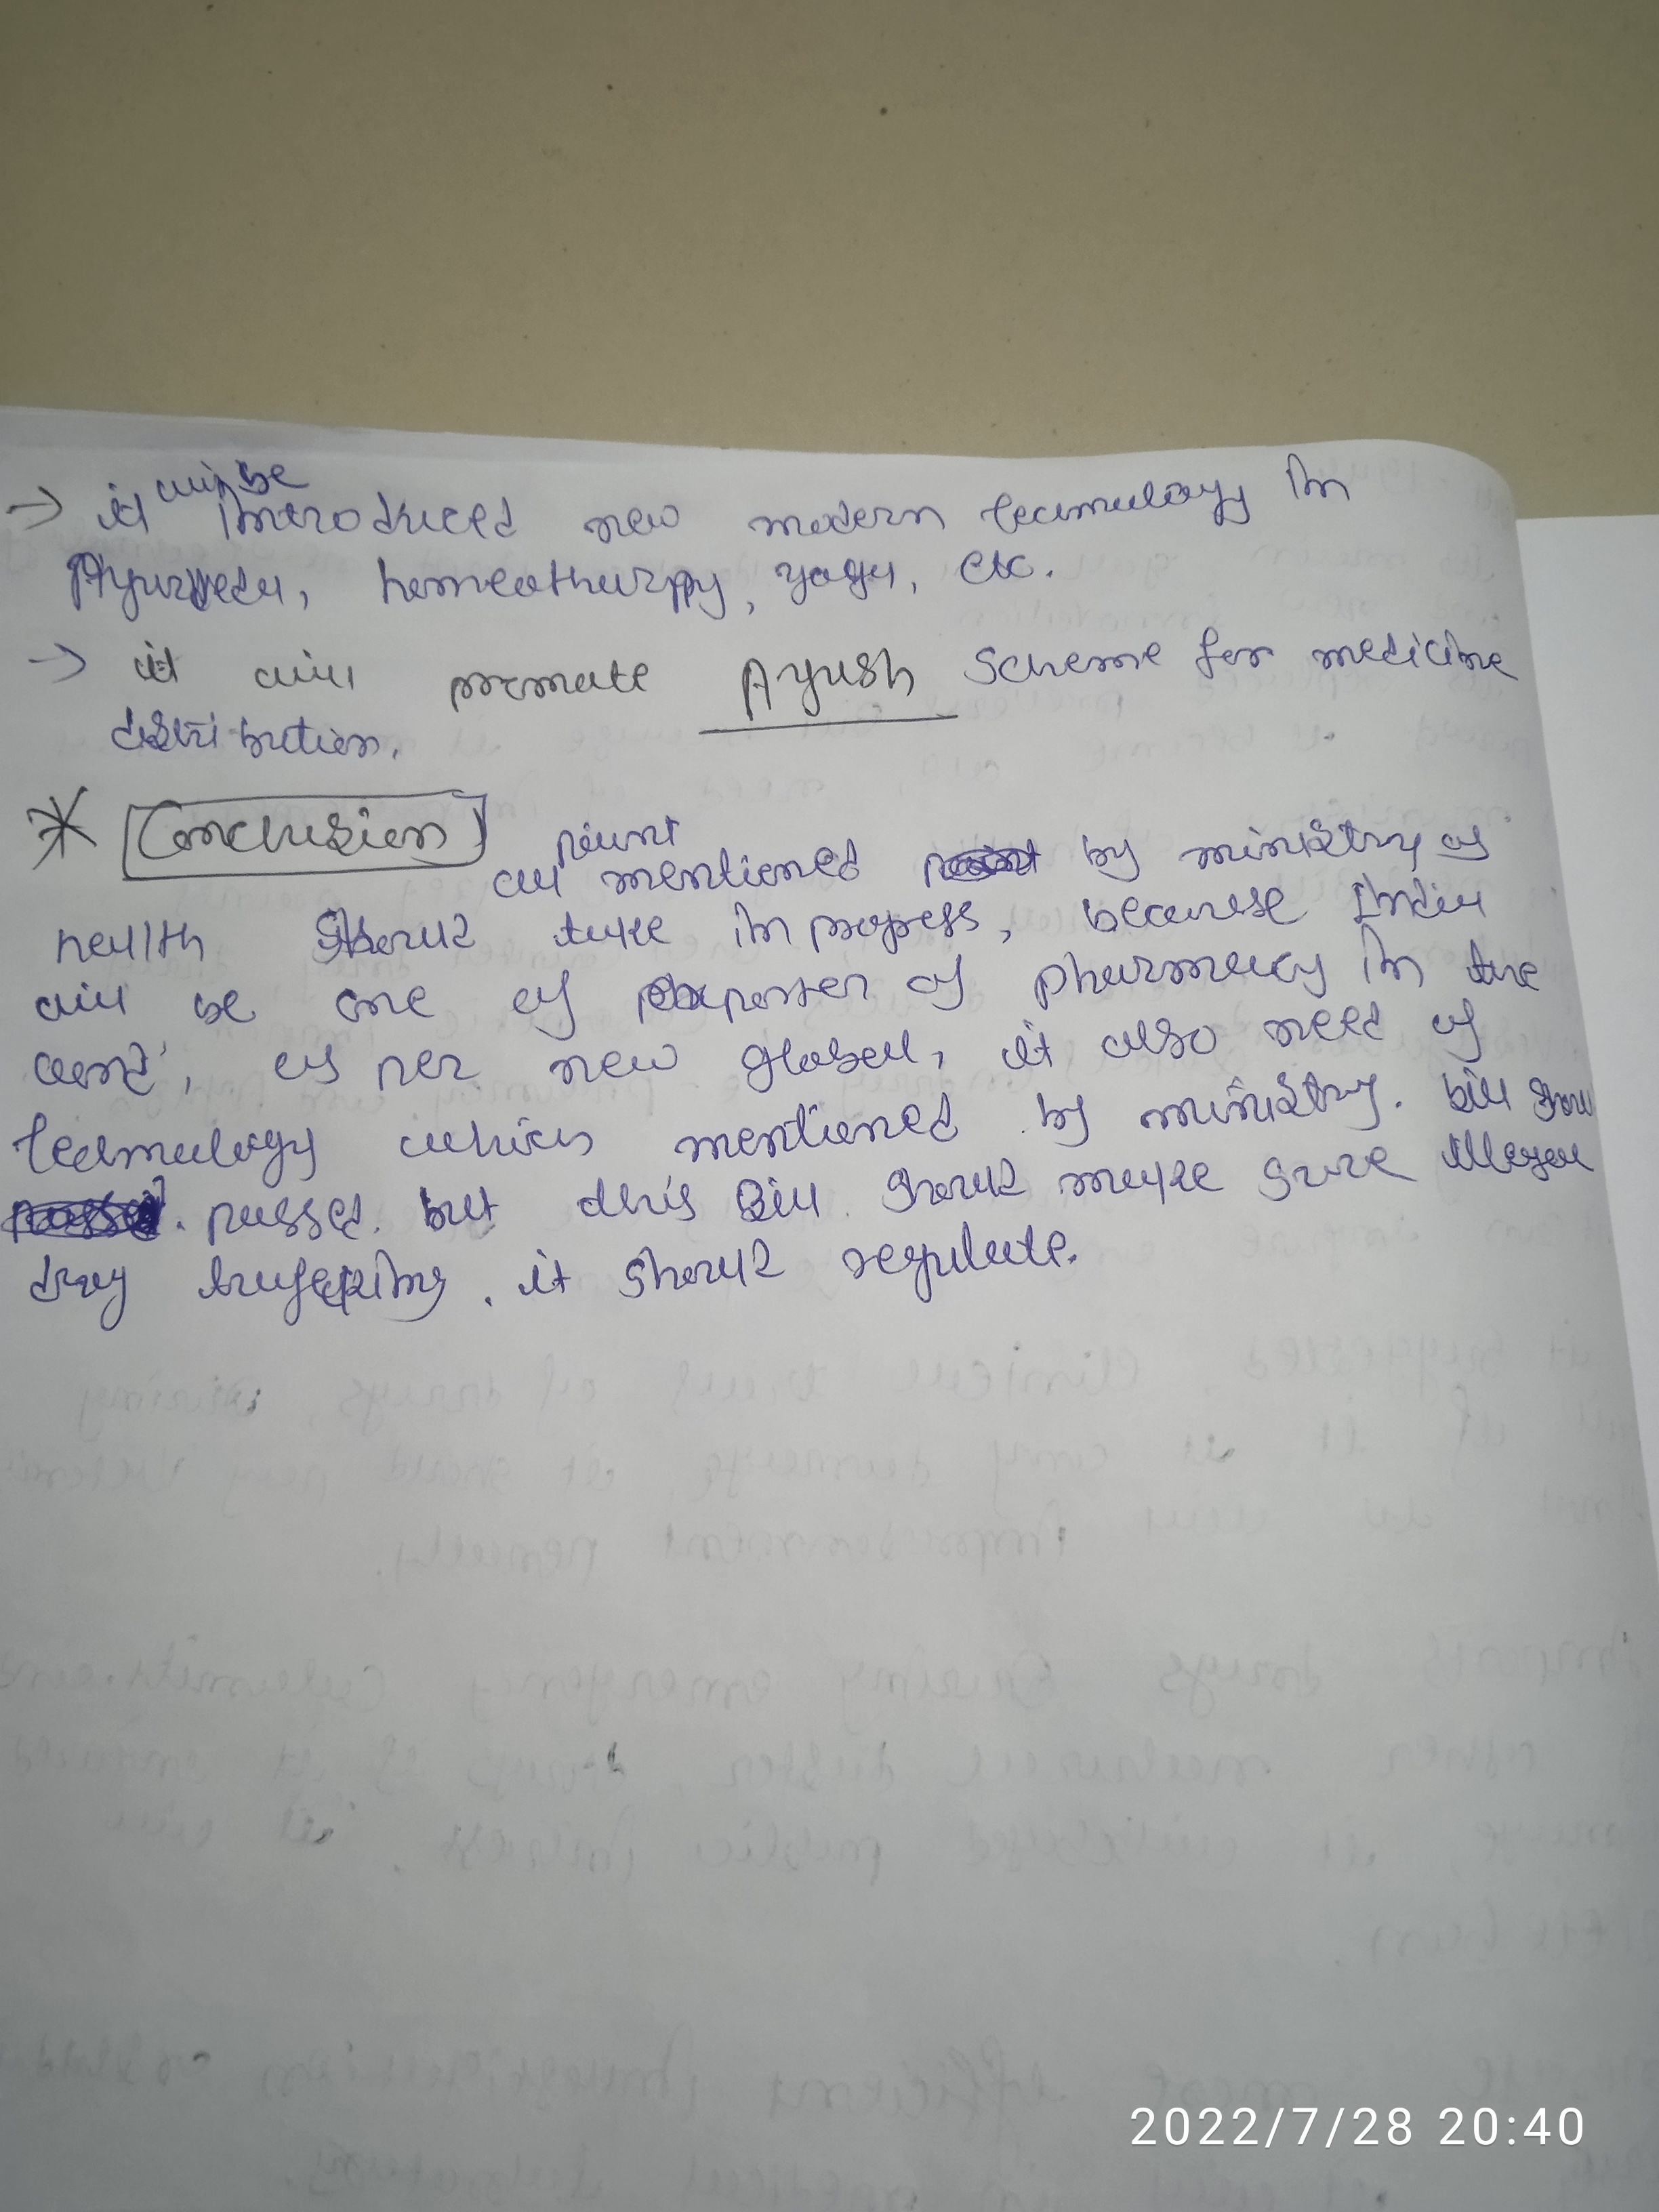 → it will be introduced new modern tecnnology in
Ayurveda, homeotharpy, yoga, etc.
→ it will promote Ayush Scheme for medicine
distribution.
* Conclusion
all point mentioned by ministry of
health should take in progress, because India
will be one of exporter of pharmacy in the
world, as per new global, it also need of
tecnnology which mentioned by ministry. bill shoul
passed. but this Bill should make sure illegal
drug it should regulate.
2022/7/28 20:40